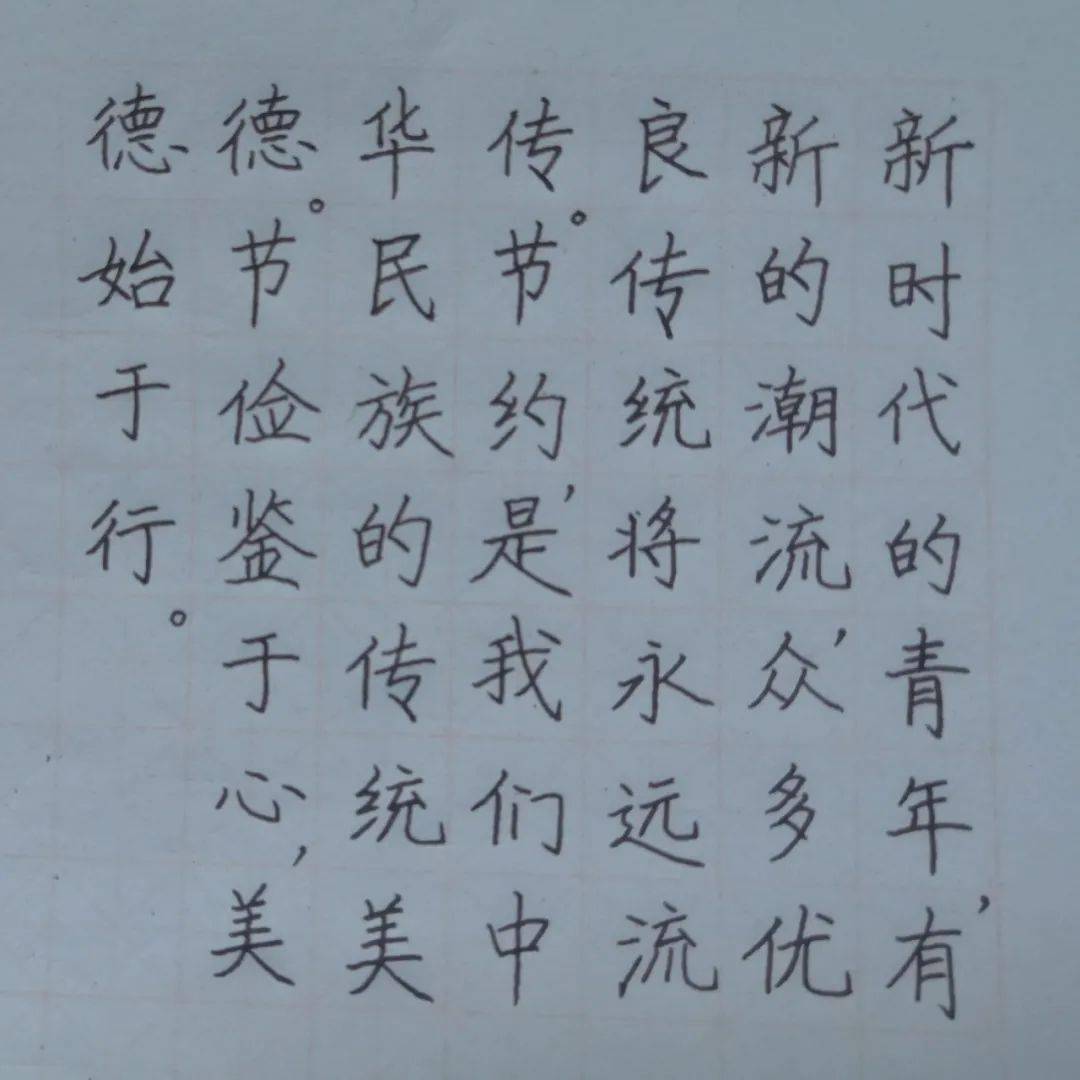 新时代的青年,有
新的潮流,众多优
良传统将永远流
传。节约,是我们中
华民族的传统美
德。节俭鉴于心,美
德始于行。